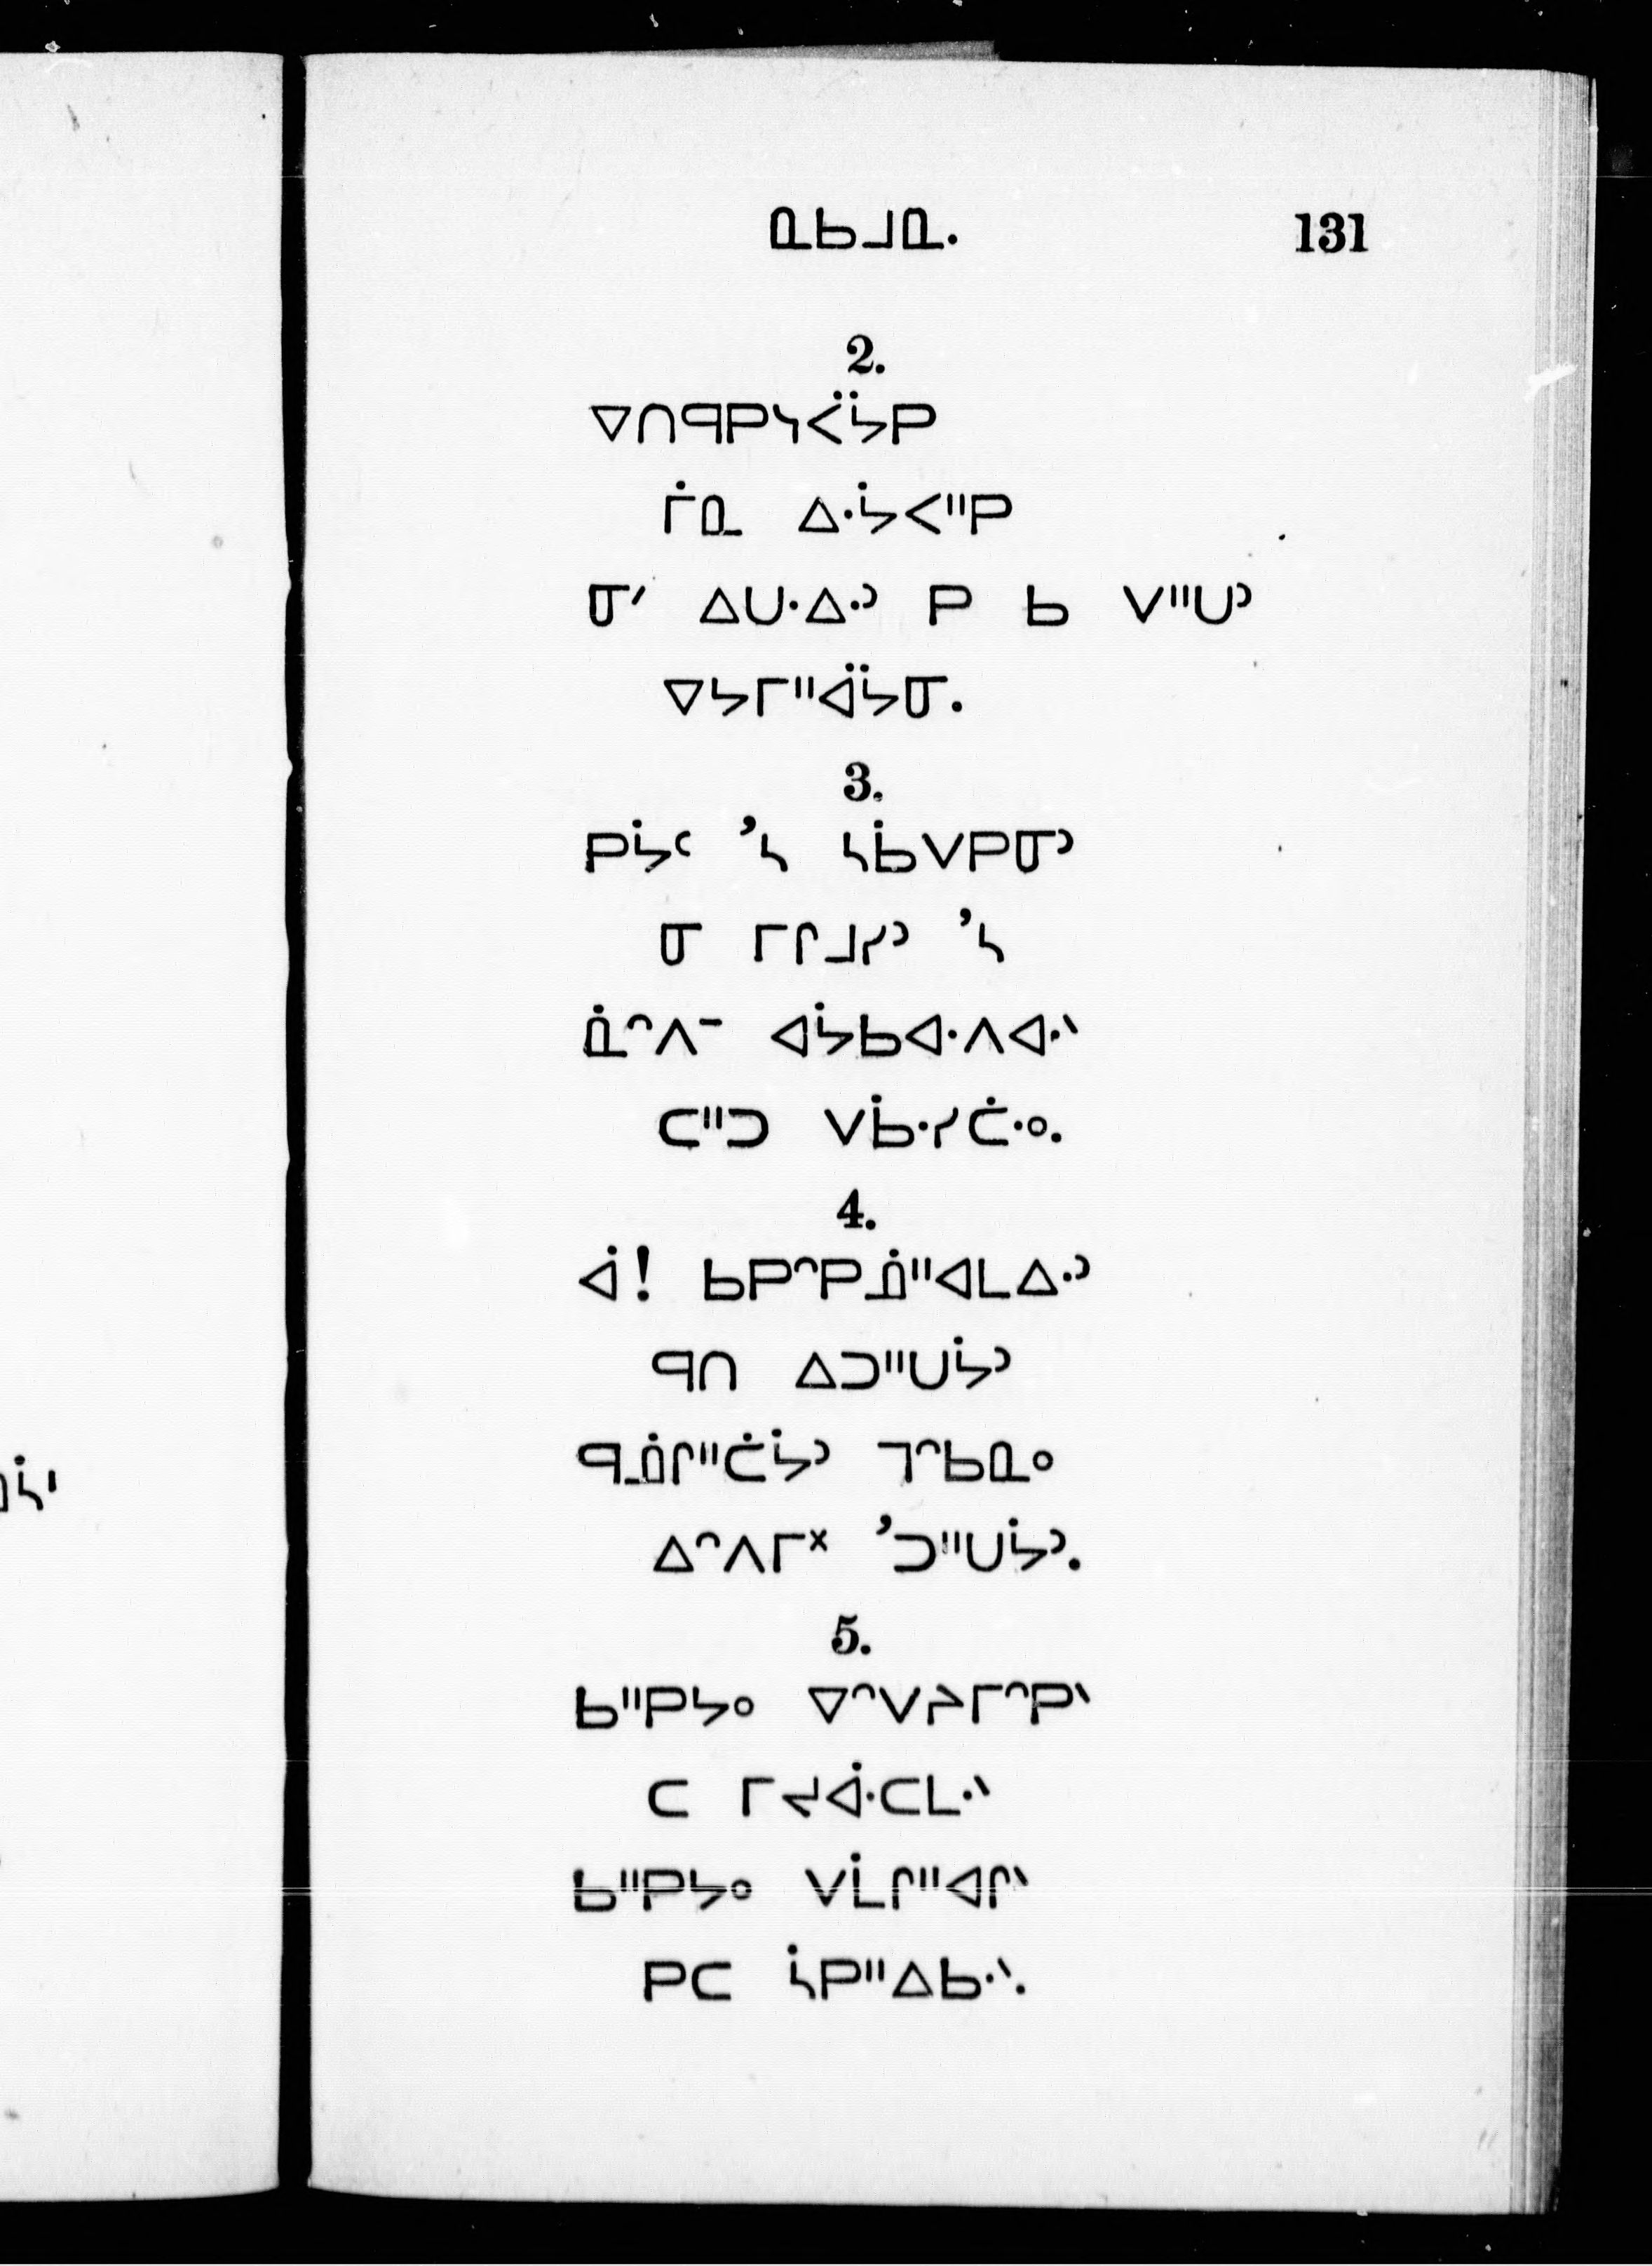 ᓇᑲᒧᓇ.
131
2.
ᐁᑎᑫᑭᓭᐹᔮᑭ
ᒦᓇ ᐃᐧᔮᐸᐦᑭ
ᓂᐟ ᐃᑌᐧᐃᐧᐣ ᑭ ᑲ ᐯᐦᑌᐣ
ᐁᔭᒥᐦᐋᔮᓂ.
3.
ᑭᔮᑦ ’ᓴ ᓴᑳᐯᑭᓂᐣ
ᓂ ᒥᒋᒧᓯᐣ ’ᓴ
ᓈᐢᐱᐨ ᐊᔮᑲᐊᐧᐱᐊᐧᐠ
ᑕᐦᑐ ᐯᑳᐧᓯᑖᐧᐤ.
4.
ᐋ! ᑲᑭᐢᑭᓅᐦᐊᒪᐃᐧᐣ
ᑫᑎ ᐃᑐᐦᑌᔮᐣ
ᑫᓅᒋᐦᑖᔮᐣ ᒣᐢᑲᓇᐤ
ᐃᐢᐱᒥᕽ ’ᑐᐦᑌᔮᐣ.
5.
ᑲᐦᑭᔭᐤ ᐁᐢᐯᔨᒥᐢᑭᐠ
ᑕ ᒥᔪᐋᐧᑕᒪᐧᐠ
ᑲᐦᑭᔭᐤ ᐯᒫᒋᐦᐊᒋᐠ
ᑭᑕ ᓵᑭᐦᐃᑲᐧᐠ.
ᓵᑊ